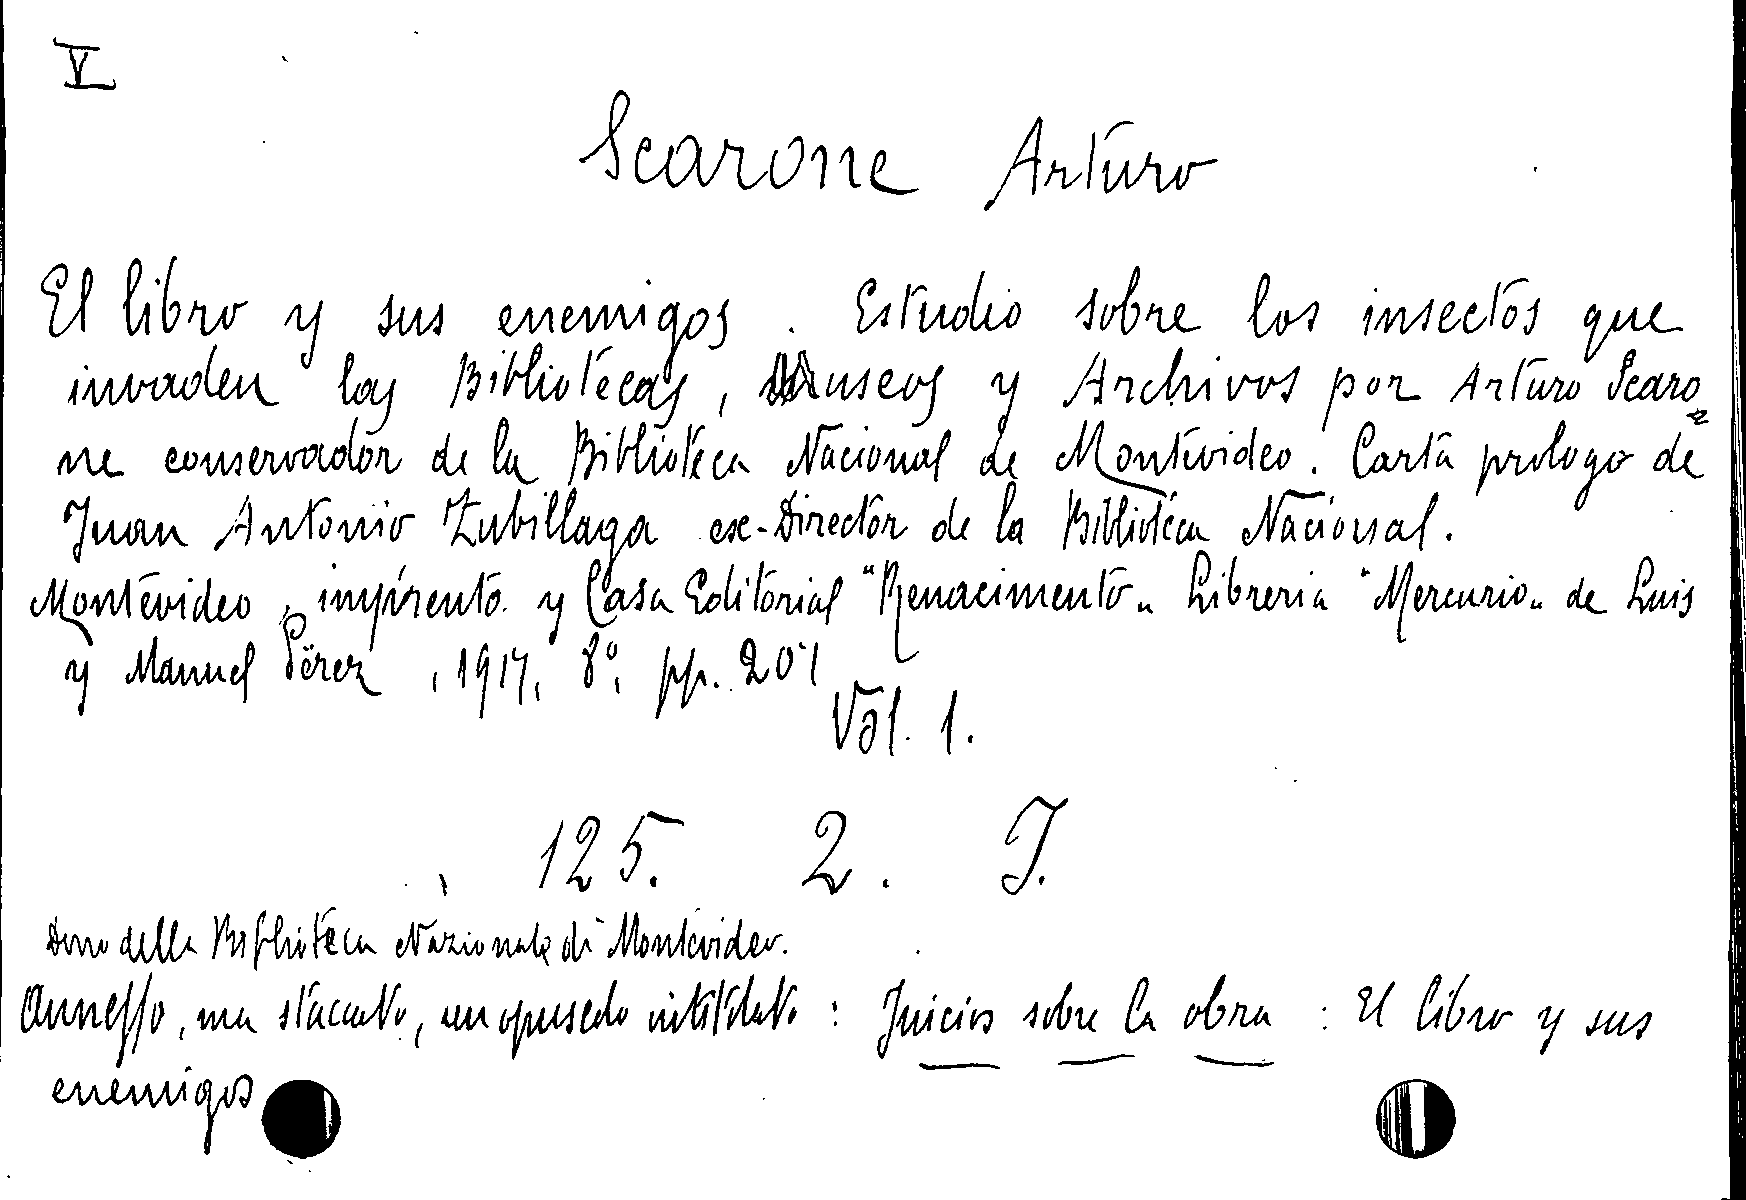 V
Scarone Arturo
El libro y sus enemigos. Estudio sobre los insectos que
invaden las Bibliotecas, Museos y Archivos por Arturo Scaro=
ne conservador de la Biblioteca Nacional de Montevideo. Carta prologo de
Juan Antonio Zubillaga ex-Director de la Biblioteca Nacional.
Montevideo, imprenta y Casa Editorial "Renacimento" Libreria "Mercurio" de Luis
y Manuel Pérez, 1917, 8°, pp. 201
Vol. 1.
125. 2. J.
Dono della Biblioteca Nazionale di Montevideo.
Annesso, ma staccato, un opuscolo intitolato: Juicios sobre la obra: El libro y sus
enemigos